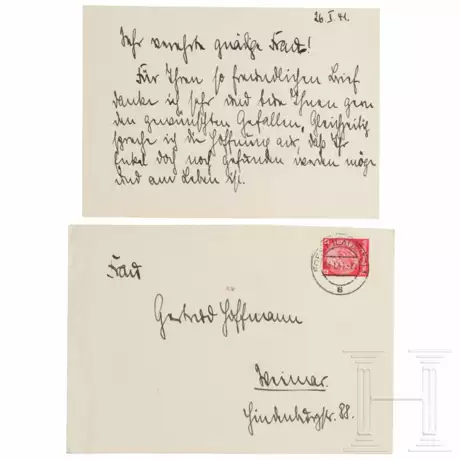 26.I.41.
Sehr verehrte gnädige Frau!
Für Ihren so freundlichen Brief
danke ich sehr und tue Ihnen gern
den gewünschten Gefallen. Gleichzeitig
spreche ich die Hoffnung aus, daß Ihr
Enkel doch noch gefunden werden möge
und am Leben ist.
Frau
Gertrud Hoffmann
Weimar.
Hindenburgstr. 88.